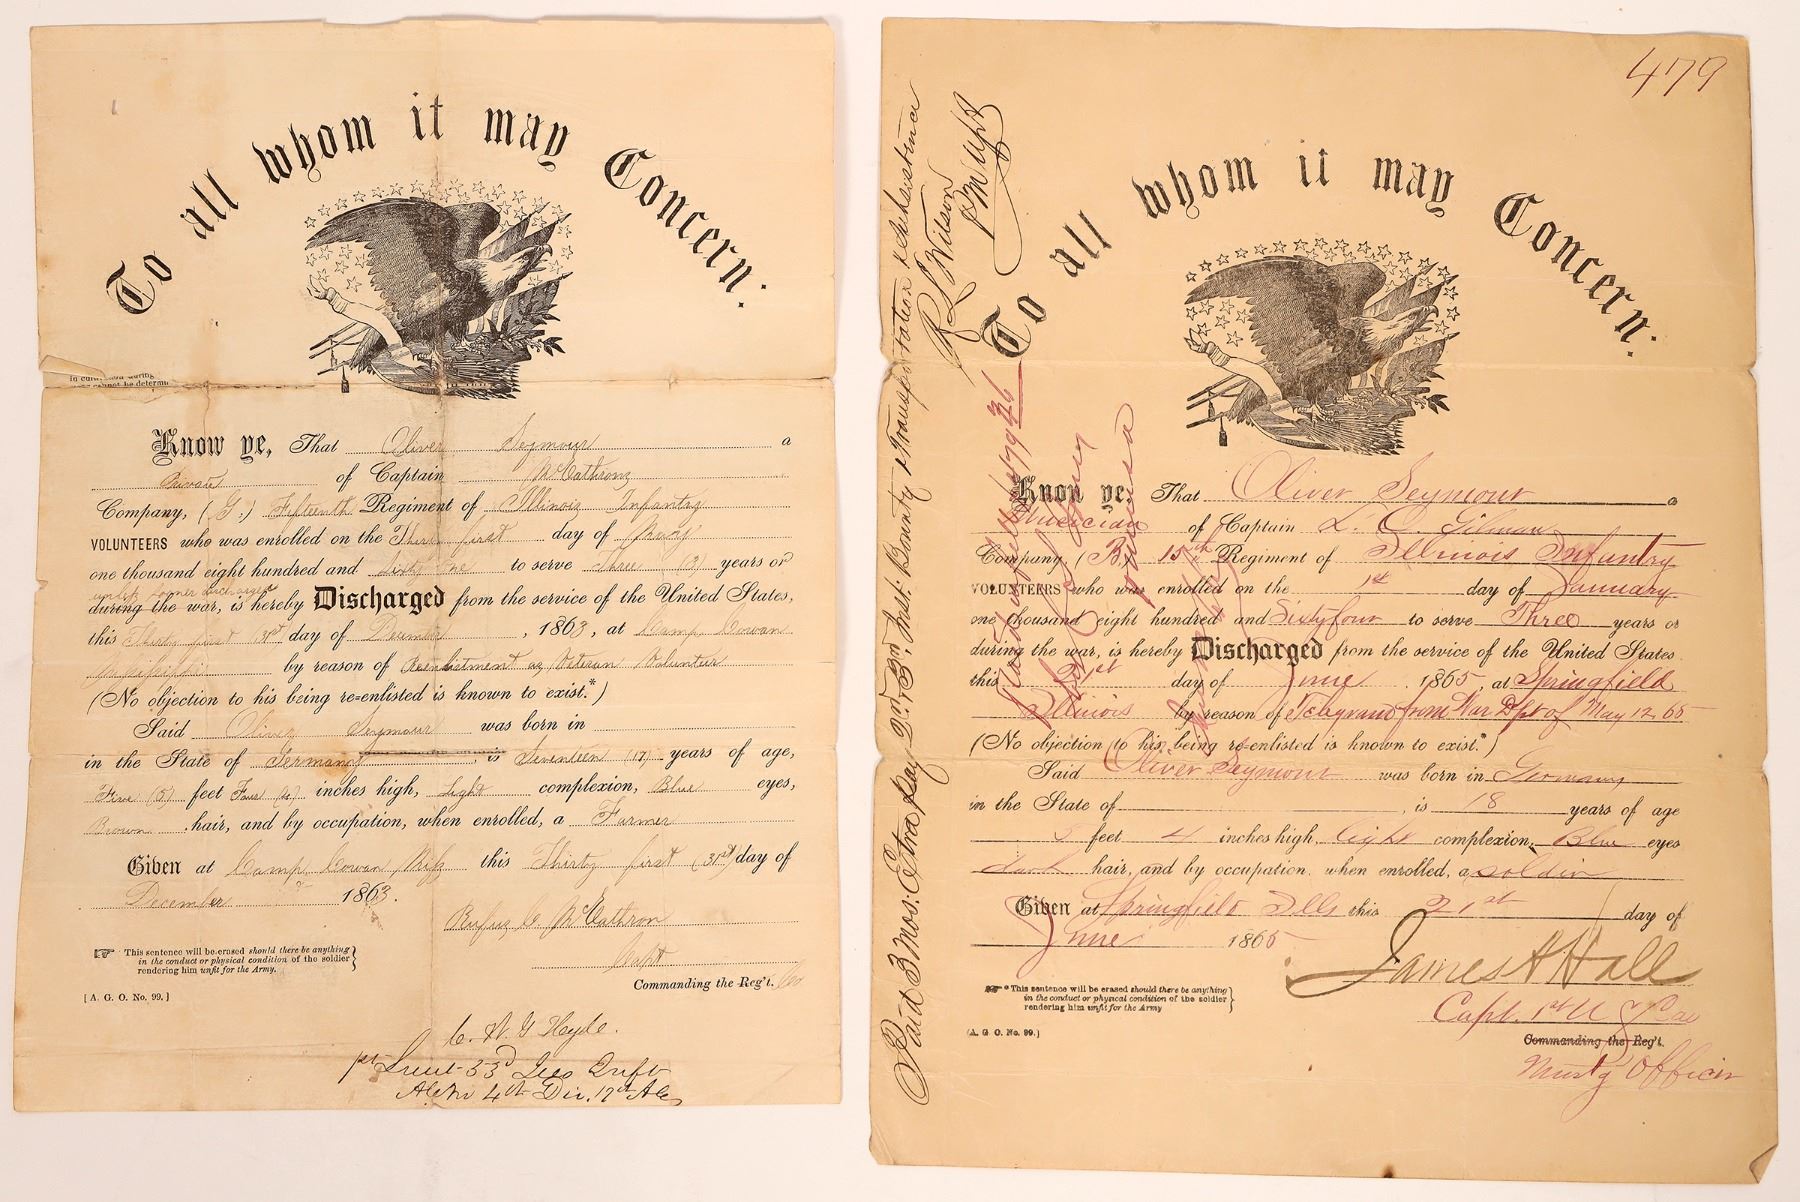 To all whom it may Concern:
In cur
during
cannot be determ
Know ye, That Oliver Seymour a
Private of Captain McCathron
Company, (G.) Fifteenth Regiment of Illinois Infantry
VOLUNTEERS who was enrolled on the Thirty first day of May
one thousand eight hundred and Sixty One to serve Three (3) years or
unless sooner discharged
during the war, is hereby Discharged from the service of the United States,
this Thirty first (31st) day of December, 1863, at Camp Cowan
Mississippi by reason of Reenlistment as Veteran Volunteer
(No objection to his being re=enlisted is known to exist.*)
Said Oliver Seymour was born in
in the State of Germany, is Seventeen (17) years of age,
Five (5) feet Four (4) inches high, Light complexion, Blue eyes,
Brown hair, and by occupation, when enrolled, a Farmer
Given at Camp Cowan Miss this Thirty first (31st) day of
December 1863.
Rufus C. McCathron
Capt
Commanding the Reg't. Co
☞ * This sentence will be erased should there be anything
in the conduct or physical condition of the soldier
rendering him unfit for the Army.
[A. G. O. No. 99.]
C. W. G Hyde.
1st Lieut 33d
4th Div. 17th
479
To all whom it may Concern:
Know ye, That Oliver Seymour a
Musician of Captain L. O. Gilman
Company, (B,) 15th Regiment of Illinois Infantry
VOLUNTEERS who was enrolled on the 1st day of January
one thousand eight hundred and Sixty four to serve Three years or
during the war, is hereby Discharged from the service of the United States
this 21st day of June, 1865, at Springfield
Illinois by reason of Telegram from War Dept of May 12 65
(No objection to his being re-enlisted is known to exist.*)
Said Oliver Seymour was born in Germany,
in the State of , is 18 years of age
5 feet 4 inches high, light complexion, Blue eyes
dark hair, and by occupation, when enrolled, a soldier
Given at Springfield Ills this 21st day of
June 1865
James H Hall
Capt. 1st U S Cav
Commanding the Reg't.
Must'g Officer
☞ * This sentence will be erased should there be anything
in the conduct or physical condition of the soldier
rendering him unfit for the Army
[A. G. O. No. 99.]
Paid 3 mos: Extra pay 2nd & 3rd Inst: Bounty & Transportation & Subsistence
R S Wilson
PM USA